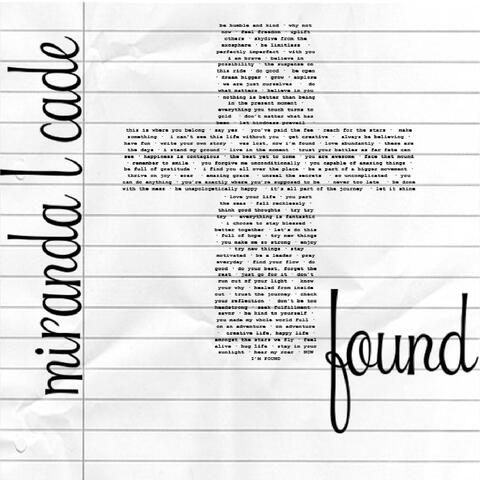 miranda l cade
be humble and kind · why not
now · feel freedom · uplift
others · skydive from the
axosphere · be limitless ·
perfectly imperfect · with you
i am brave · believe in
possibility · the suspense on
this ride · do good · be open
· dream bigger · grow · explore
· we are just ourselves · do
what matters · believe in you
· nothing is better than being
in the present moment ·
everything you touch turns to
gold · don't matter what has
been · let kindness prevail
this is where you belong · say yes · you've paid the fee · reach for the stars · make
something · i can't see this life without you · get creative · always be believing ·
have fun · write your own story · was lost, now i'm found · love abundantly · these are
the days · i stand my ground · live in the moment · trust your battles as far fate can
see · happiness is contagious · the best yet to come · you are awesome · face that hound
· remember to smile · you forgive me unconditionally · you capable of amazing things ·
be full of gratitude · i find you all over the place · be a part of a bigger movement ·
thrive on joy · soar · amazing grace · unseal the secrets · so uncomplicated · you
can do anything · you're exactly where you're supposed to be · never too late · be done
with the mess · be unapologetically happy · it's all part of the journey · let it shine
· love your life · you part
the seas · fall recklessly ·
think good thoughts · try try
try · everything is fantastic
· i choose to stay blessed ·
better together · let's do this
· full of hope · try new things
· you make me so strong · enjoy
· try new things · stay
motivated · be a leader · pray
everyday · find your flow · do
good · do your best, forget the
rest · just go for it · don't
run out of your light · know
your why · healed from inside
out · trust the journey · check
your reflection · don't be too
headstrong · seek fulfillment
savor · be kind to yourself ·
you made my whole world full ·
on an adventure · on adventure
· creative life, happy life ·
amongst the stars we fly · feel
alive · hug life · stay in your
sunlight · hear my roar · NOW
I'M FOUND
found